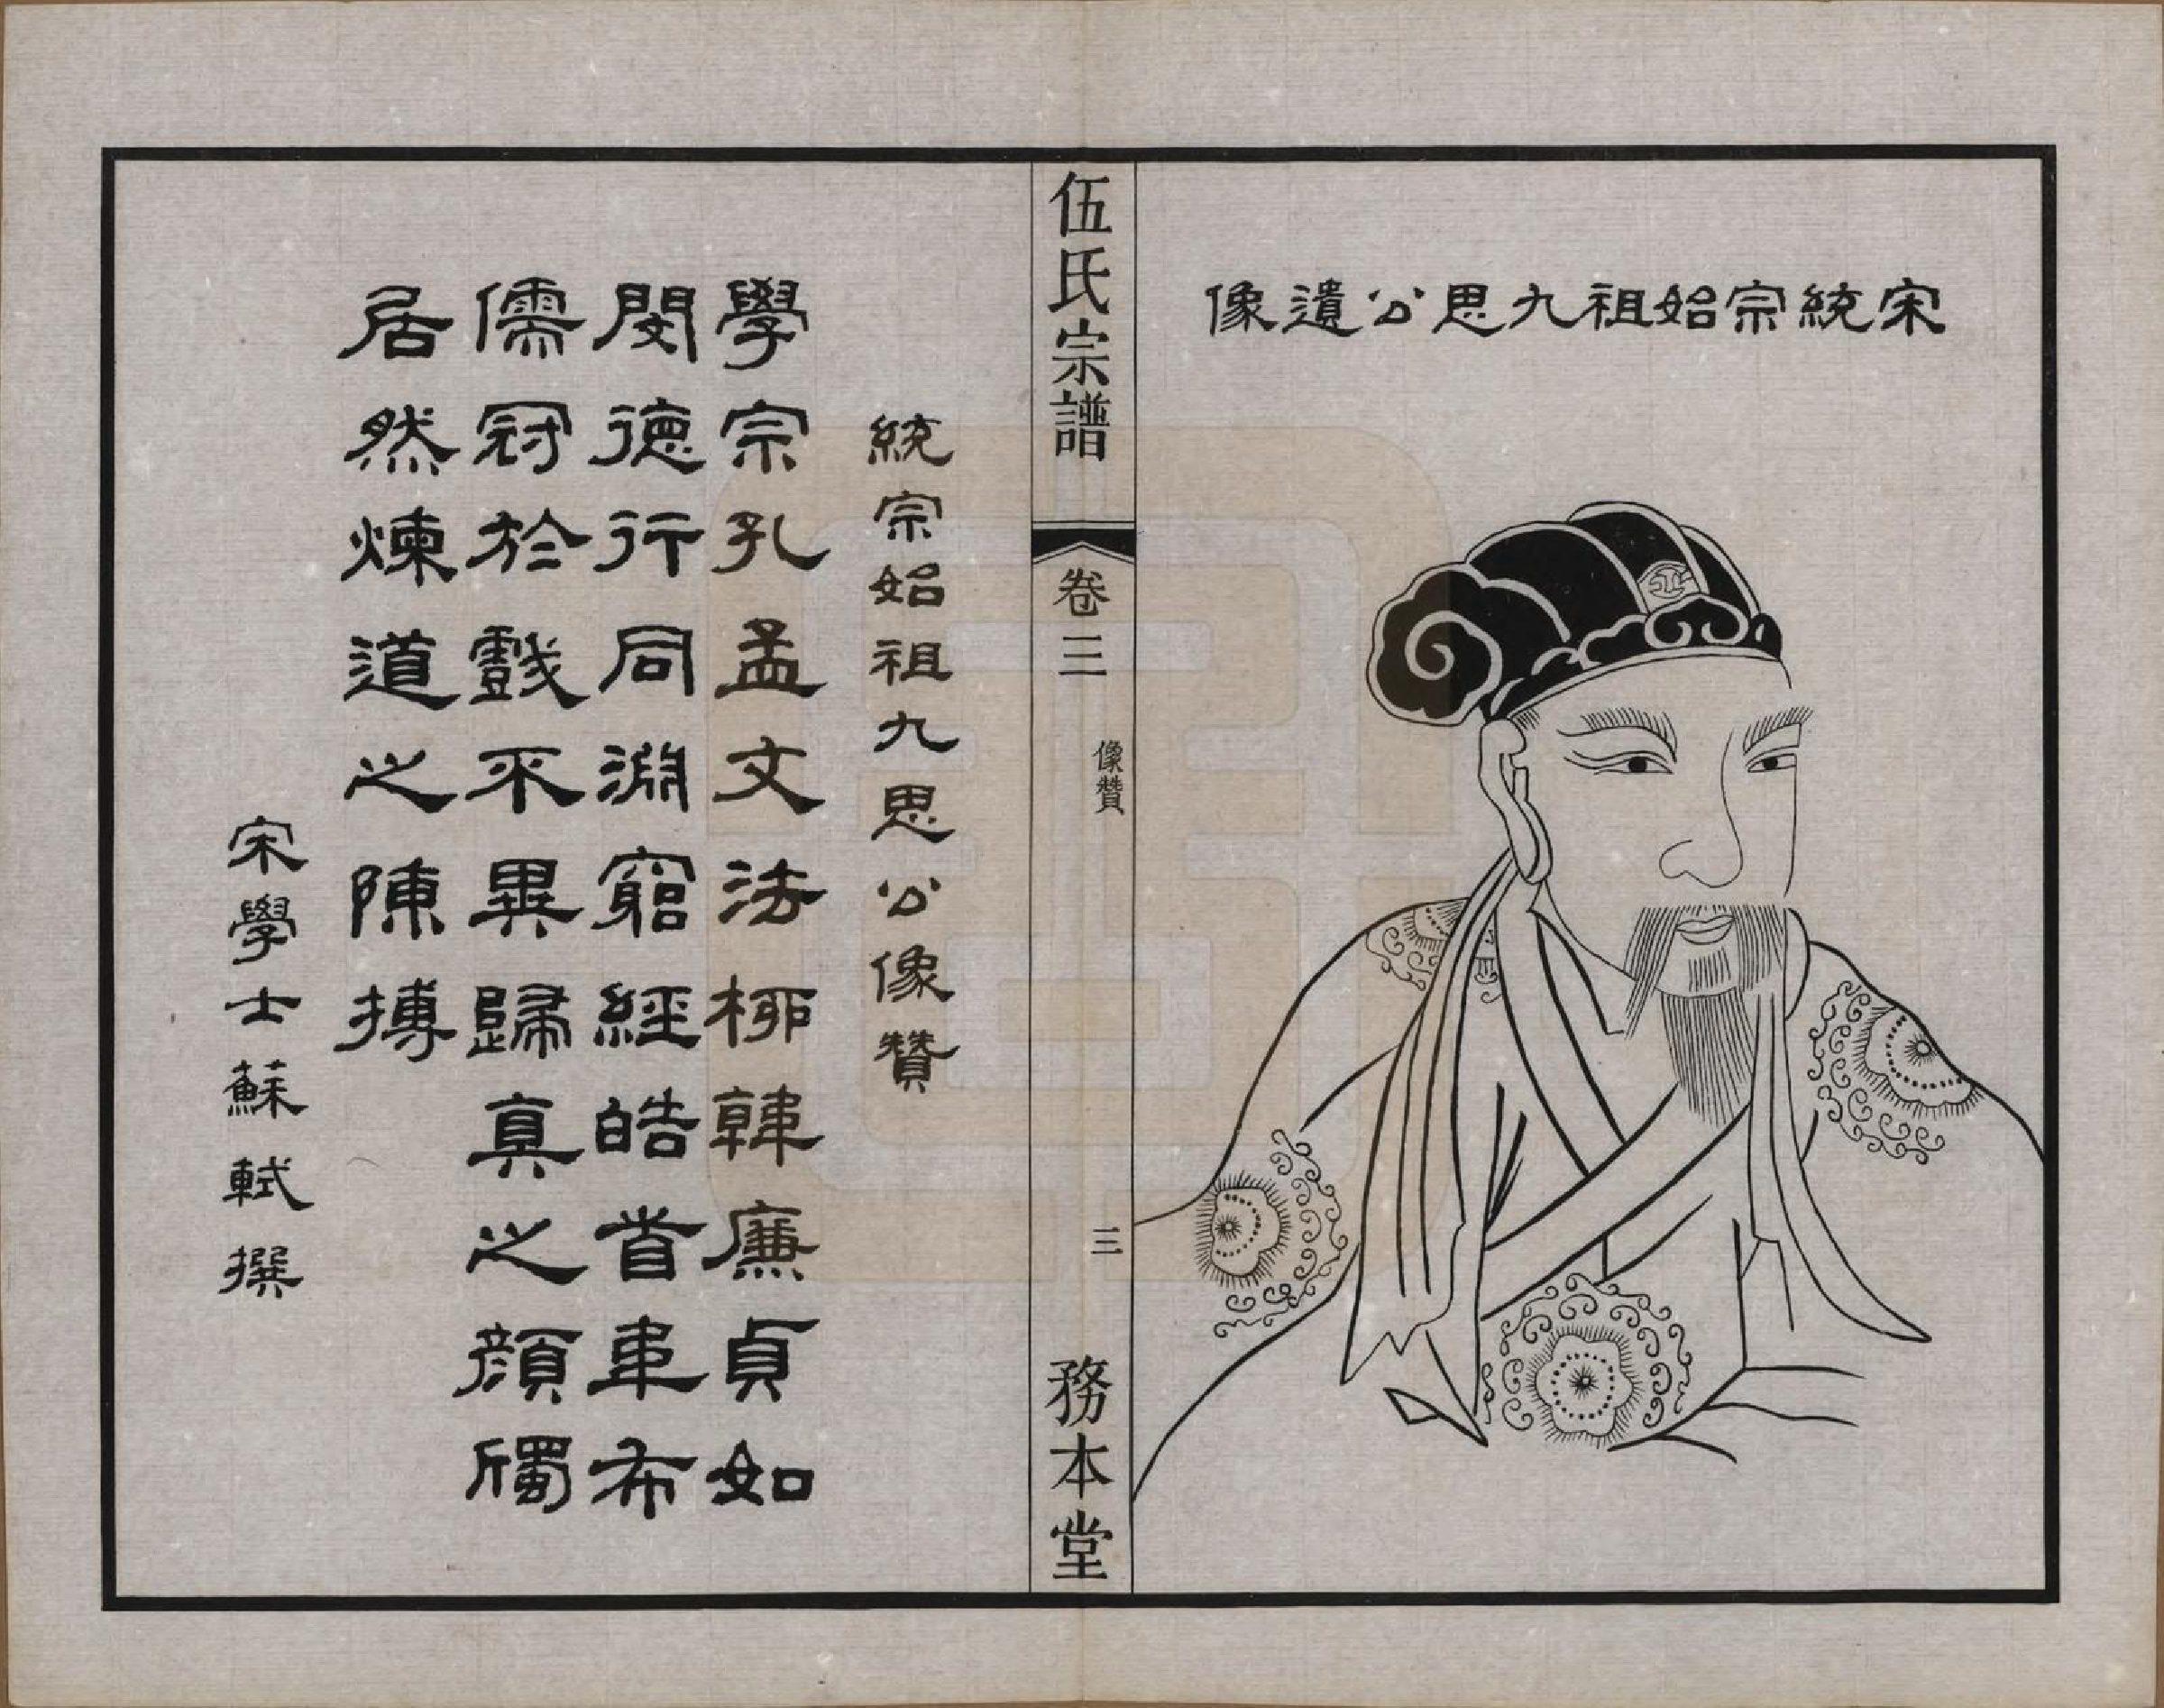 宋統宗始祖九思公遺像
伍氏宗譜
卷三
像贊
三
務本堂
統宗始祖九思公像贊
學宗孔孟文法柳韓廉貞如
閔德行同淵窮經皓首韋布
儒冠於戲不異歸真之顏獨
居然煉道之陳摶
宋學士蘇軾撰